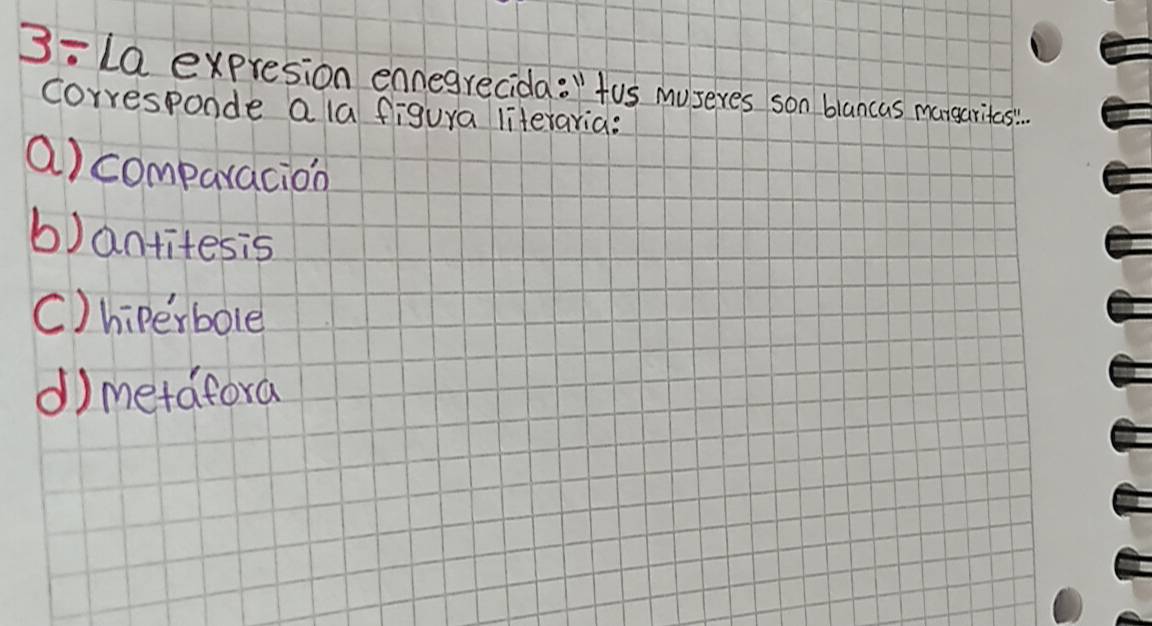 3-. La expresion ennegrecida: "tus mujeres son blancas margaritas"...
corresponde a la figura literaria:
a) comparación
b) antitesis
c) hipérbole
d) metáfora